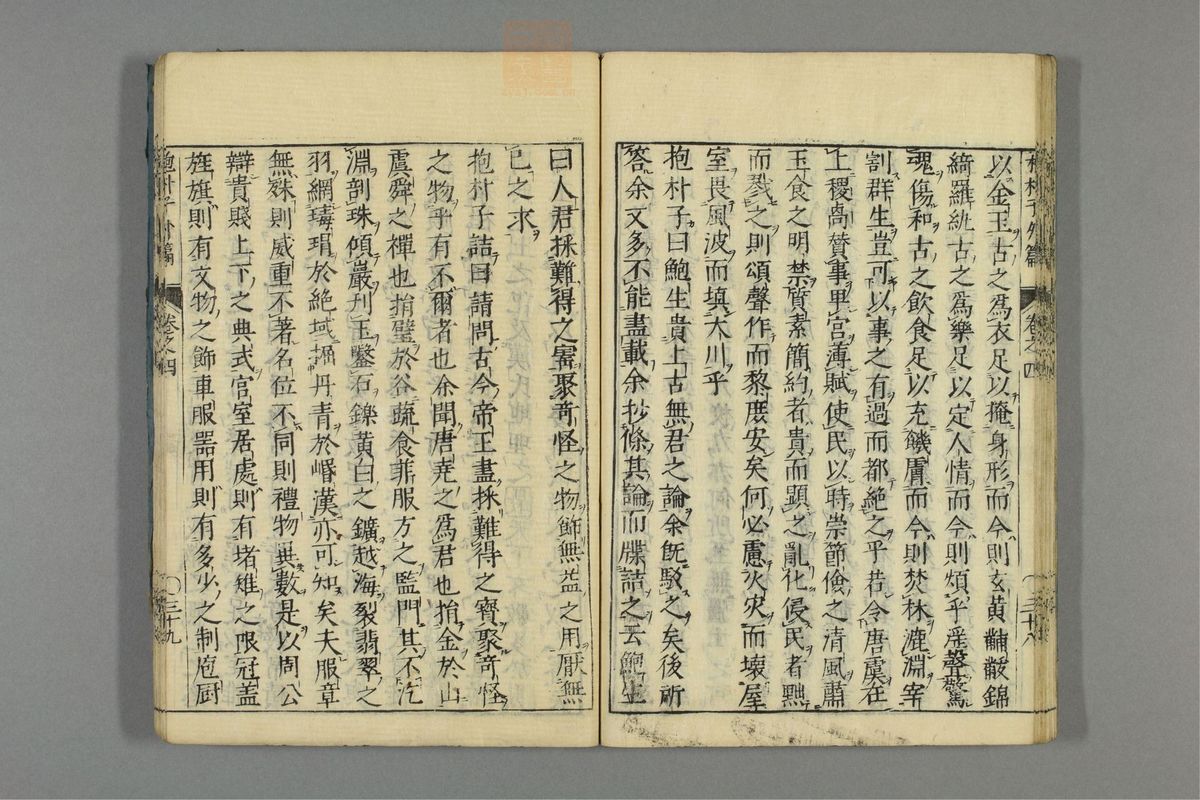 以金玉古之爲衣足以掩身形而今則玄黃黼黻錦
綺羅紈古之爲樂足以定人情而今則煩乎淫聲驚
魂傷和古之飲食足以充饑虛而今則焚林漉淵宰
割群生豈可以事之有過而都絕之乎若令唐虞在
上稷卨贊事卑宮薄賦使民以時崇節儉之清風肅
玉食之明禁質素簡約者貴而顯之亂化侵民者黜
而戮之則頌聲作而黎庶安矣何必慮火灾而壞屋
室畏風波而填大川乎
抱朴子曰鮑生貴上古無君之論余旣駁之矣後所
答余文多不能盡載余抄條其論而牒詰之云鮑生
抱朴子外篇 卷之四 ○三十八
曰人君採難得之寶聚奇怪之物飾無益之用厭無
已之求
抱朴子詰曰請問古今帝王盡採難得之寶聚奇怪
之物乎有不爾者也余聞唐堯之爲君也捐金於山
虞舜之禪也捐璧於谷蔬食菲服方之監門其不汔
淵剖珠傾巖刊玉鑿石鑠黃白之鑛越海裂翡翠之
羽網瑇瑁於絕域掘丹青於㟭漢亦可知矣夫服章
無殊則威重不著名位不同則禮物異數是以周公
辯貴賤上下之典式宮室居處則有堵雉之限冠盖
旌旗則有文物之飾車服器用則有多少之制庖厨
抱朴子外篇 卷之四 ○三十九